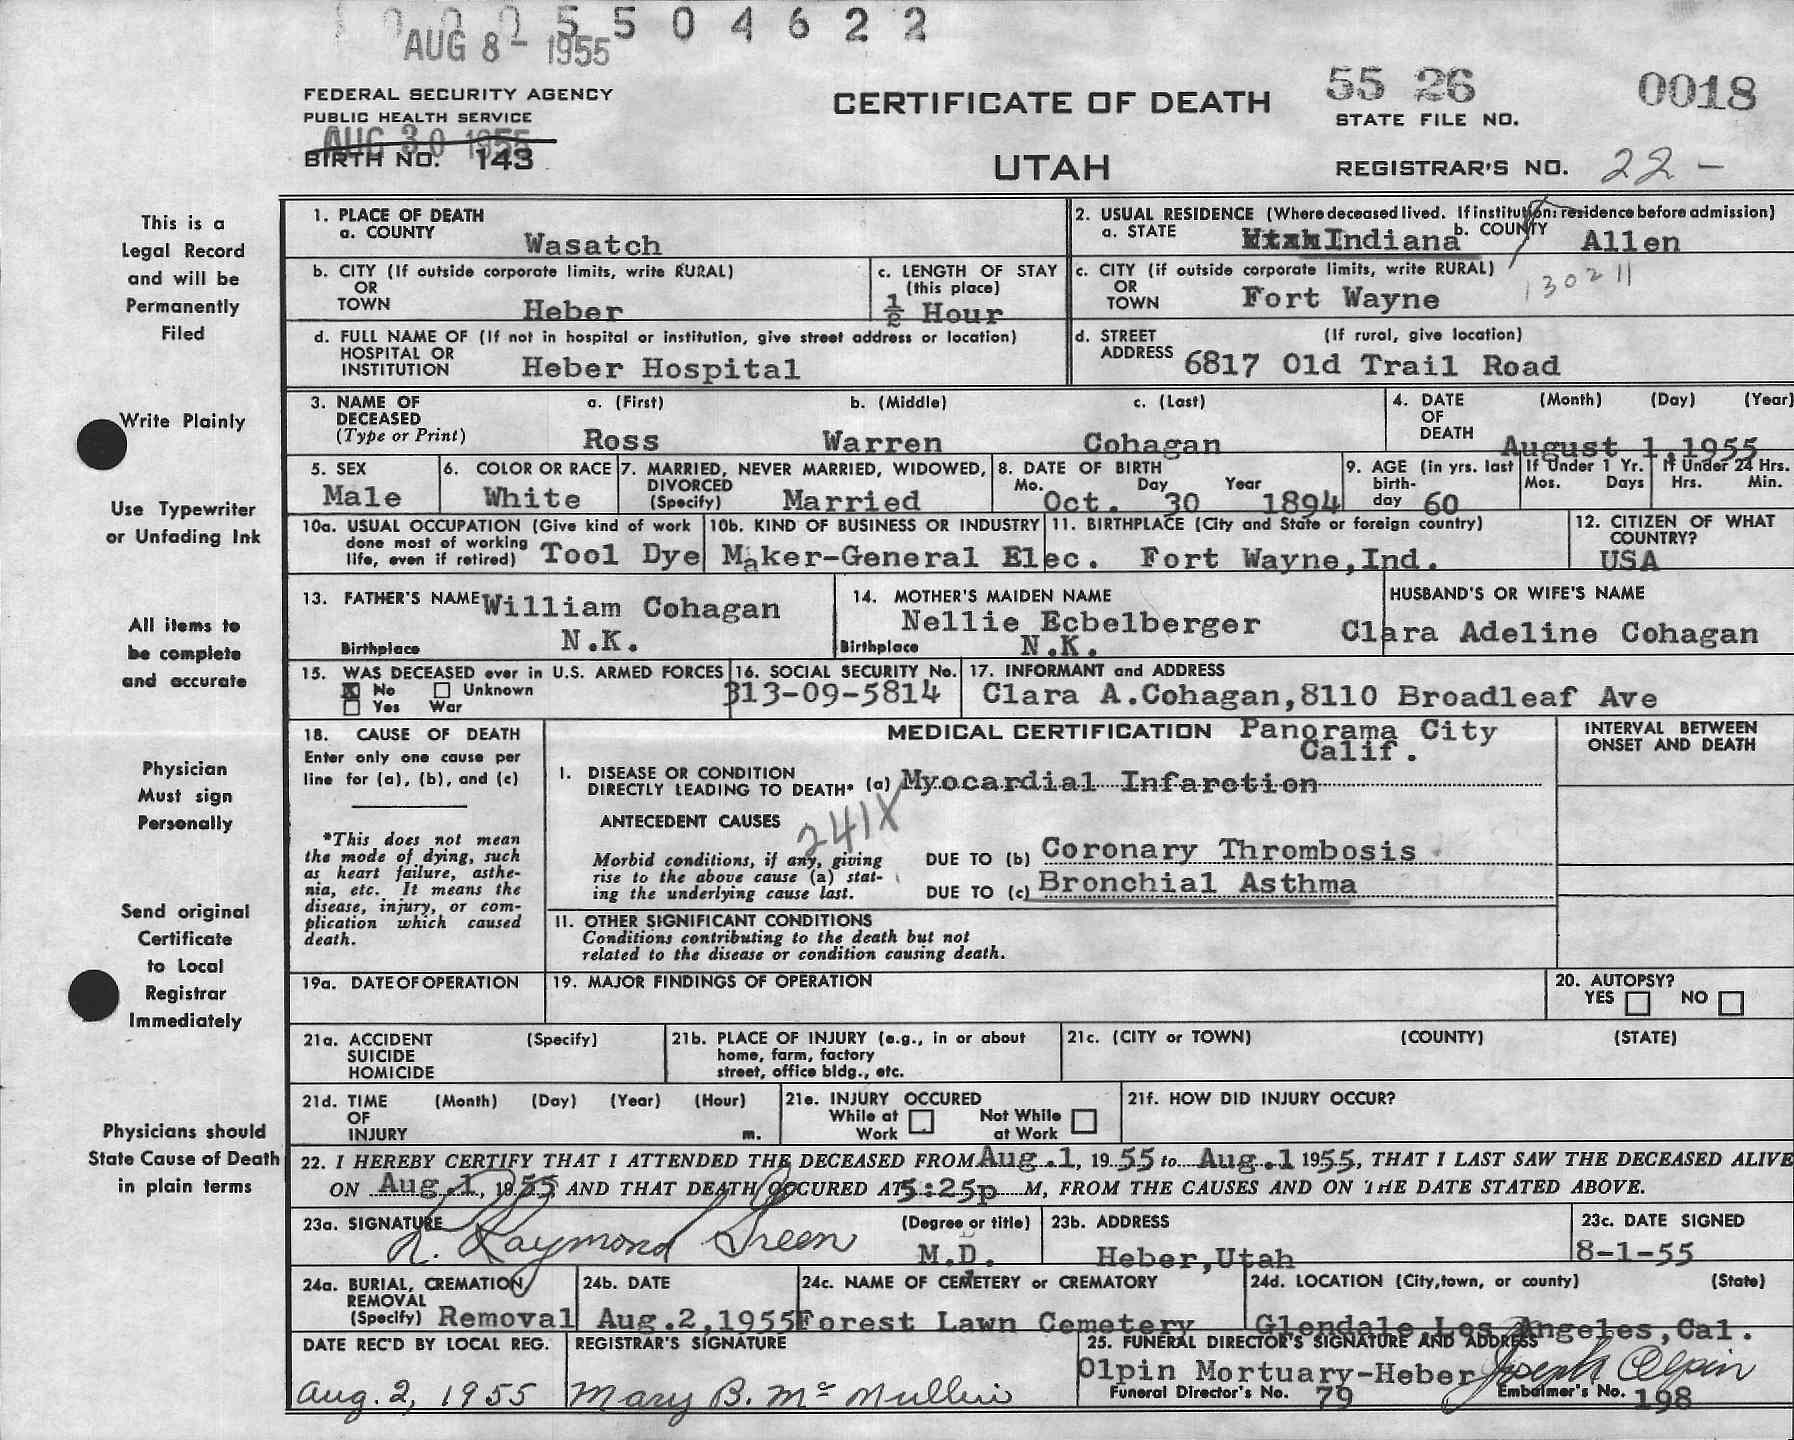 5504622
AUG 8 - 1955
FEDERAL SECURITY AGENCY
PUBLIC HEALTH SERVICE
AUG 30 1955
BIRTH NO. 143
CERTIFICATE OF DEATH
UTAH
55 26 0018
STATE FILE NO.
REGISTRAR'S NO. 22 -
This is a
Legal Record
and will be
Permanently
Filed
Write Plainly
Use Typewriter
or Unfading Ink
All items to
be complete
and accurate
Physician
Must sign
Personally
Send original
Certificate
to Local
Registrar
Immediately
Physicians should
State Cause of Death
in plain terms
1. PLACE OF DEATH
a. COUNTY Wasatch
2. USUAL RESIDENCE (Where deceased lived. If institution: residence before admission)
a. STATE Indiana b. COUNTY Allen
b. CITY (If outside corporate limits, write RURAL)
OR
TOWN Heber
c. LENGTH OF STAY
(this place)
½ Hour
c. CITY (if outside corporate limits, write RURAL)
OR
TOWN Fort Wayne
130211
d. FULL NAME OF (If not in hospital or institution, give street address or location)
HOSPITAL OR
INSTITUTION Heber Hospital
d. STREET (If rural, give location)
ADDRESS 6817 Old Trail Road
3. NAME OF a. (First) b. (Middle) c. (Last)
DECEASED
(Type or Print) Ross Warren Cohagan
4. DATE (Month) (Day) (Year)
OF
DEATH August 1,1955
5. SEX
Male
6. COLOR OR RACE
White
7. MARRIED, NEVER MARRIED, WIDOWED,
DIVORCED
(Specify) Married
8. DATE OF BIRTH
Mo. Day Year
Oct. 30 1894
9. AGE (in yrs. last
birth-
day 60
If Under 1 Yr.
Mos. Days
If Under 24 Hrs.
Hrs. Min.
10a. USUAL OCCUPATION (Give kind of work
done most of working
life, even if retired) Tool Dye
10b. KIND OF BUSINESS OR INDUSTRY
Maker-General Elec.
11. BIRTHPLACE (City and State or foreign country)
Fort Wayne,Ind.
12. CITIZEN OF WHAT
COUNTRY?
USA
13. FATHER'S NAME William Cohagan
Birthplace N.K.
14. MOTHER'S MAIDEN NAME
Nellie Ecbelberger
Birthplace N.K.
HUSBAND'S OR WIFE'S NAME
Clara Adeline Cohagan
15. WAS DECEASED ever in U.S. ARMED FORCES
No Unknown
Yes War
16. SOCIAL SECURITY No.
313-09-5814
17. INFORMANT and ADDRESS
Clara A.Cohagan,8110 Broadleaf Ave
Panorama City
Calif.
18. CAUSE OF DEATH
Enter only one cause per
line for (a), (b), and (c)
*This does not mean
the mode of dying, such
as heart failure, asthe-
nia, etc. It means the
disease, injury, or com-
plication which caused
death.
MEDICAL CERTIFICATION
INTERVAL BETWEEN
ONSET AND DEATH
I. DISEASE OR CONDITION
DIRECTLY LEADING TO DEATH* (a) Myocardial Infarction
ANTECEDENT CAUSES
241X
Morbid conditions, if any, giving
rise to the above cause (a) stat-
ing the underlying cause last.
DUE TO (b) Coronary Thrombosis
DUE TO (c) Bronchial Asthma
II. OTHER SIGNIFICANT CONDITIONS
Conditions contributing to the death but not
related to the disease or condition causing death.
19a. DATE OF OPERATION
19. MAJOR FINDINGS OF OPERATION
20. AUTOPSY?
YES NO
21a. ACCIDENT (Specify)
SUICIDE
HOMICIDE
21b. PLACE OF INJURY (e.g., in or about
home, farm, factory
street, office bldg., etc.
21c. (CITY or TOWN) (COUNTY) (STATE)
21d. TIME (Month) (Day) (Year) (Hour)
OF
INJURY m.
21e. INJURY OCCURED
While at Work Not While at Work
21f. HOW DID INJURY OCCUR?
22. I HEREBY CERTIFY THAT I ATTENDED THE DECEASED FROM Aug.1, 1955 to Aug.1 1955, THAT I LAST SAW THE DECEASED ALIVE
ON Aug.1, 1955 AND THAT DEATH OCCURED AT 5:25p M, FROM THE CAUSES AND ON THE DATE STATED ABOVE.
23a. SIGNATURE (Degree or title)
R. Raymond Green M.D.
23b. ADDRESS
Heber,Utah
23c. DATE SIGNED
8-1-55
24a. BURIAL, CREMATION,
REMOVAL
(Specify) Removal
24b. DATE
Aug.2,1955
24c. NAME OF CEMETERY or CREMATORY
Forest Lawn Cemetery
24d. LOCATION (City,town, or county) (State)
Glendale Los Angeles,Cal.
DATE REC'D BY LOCAL REG.
Aug. 2, 1955
REGISTRAR'S SIGNATURE
Mary B. McMullin
25. FUNERAL DIRECTOR'S SIGNATURE AND ADDRESS
Olpin Mortuary-Heber Joseph Olpin
Funeral Director's No. 79
Embalmer's No. 198